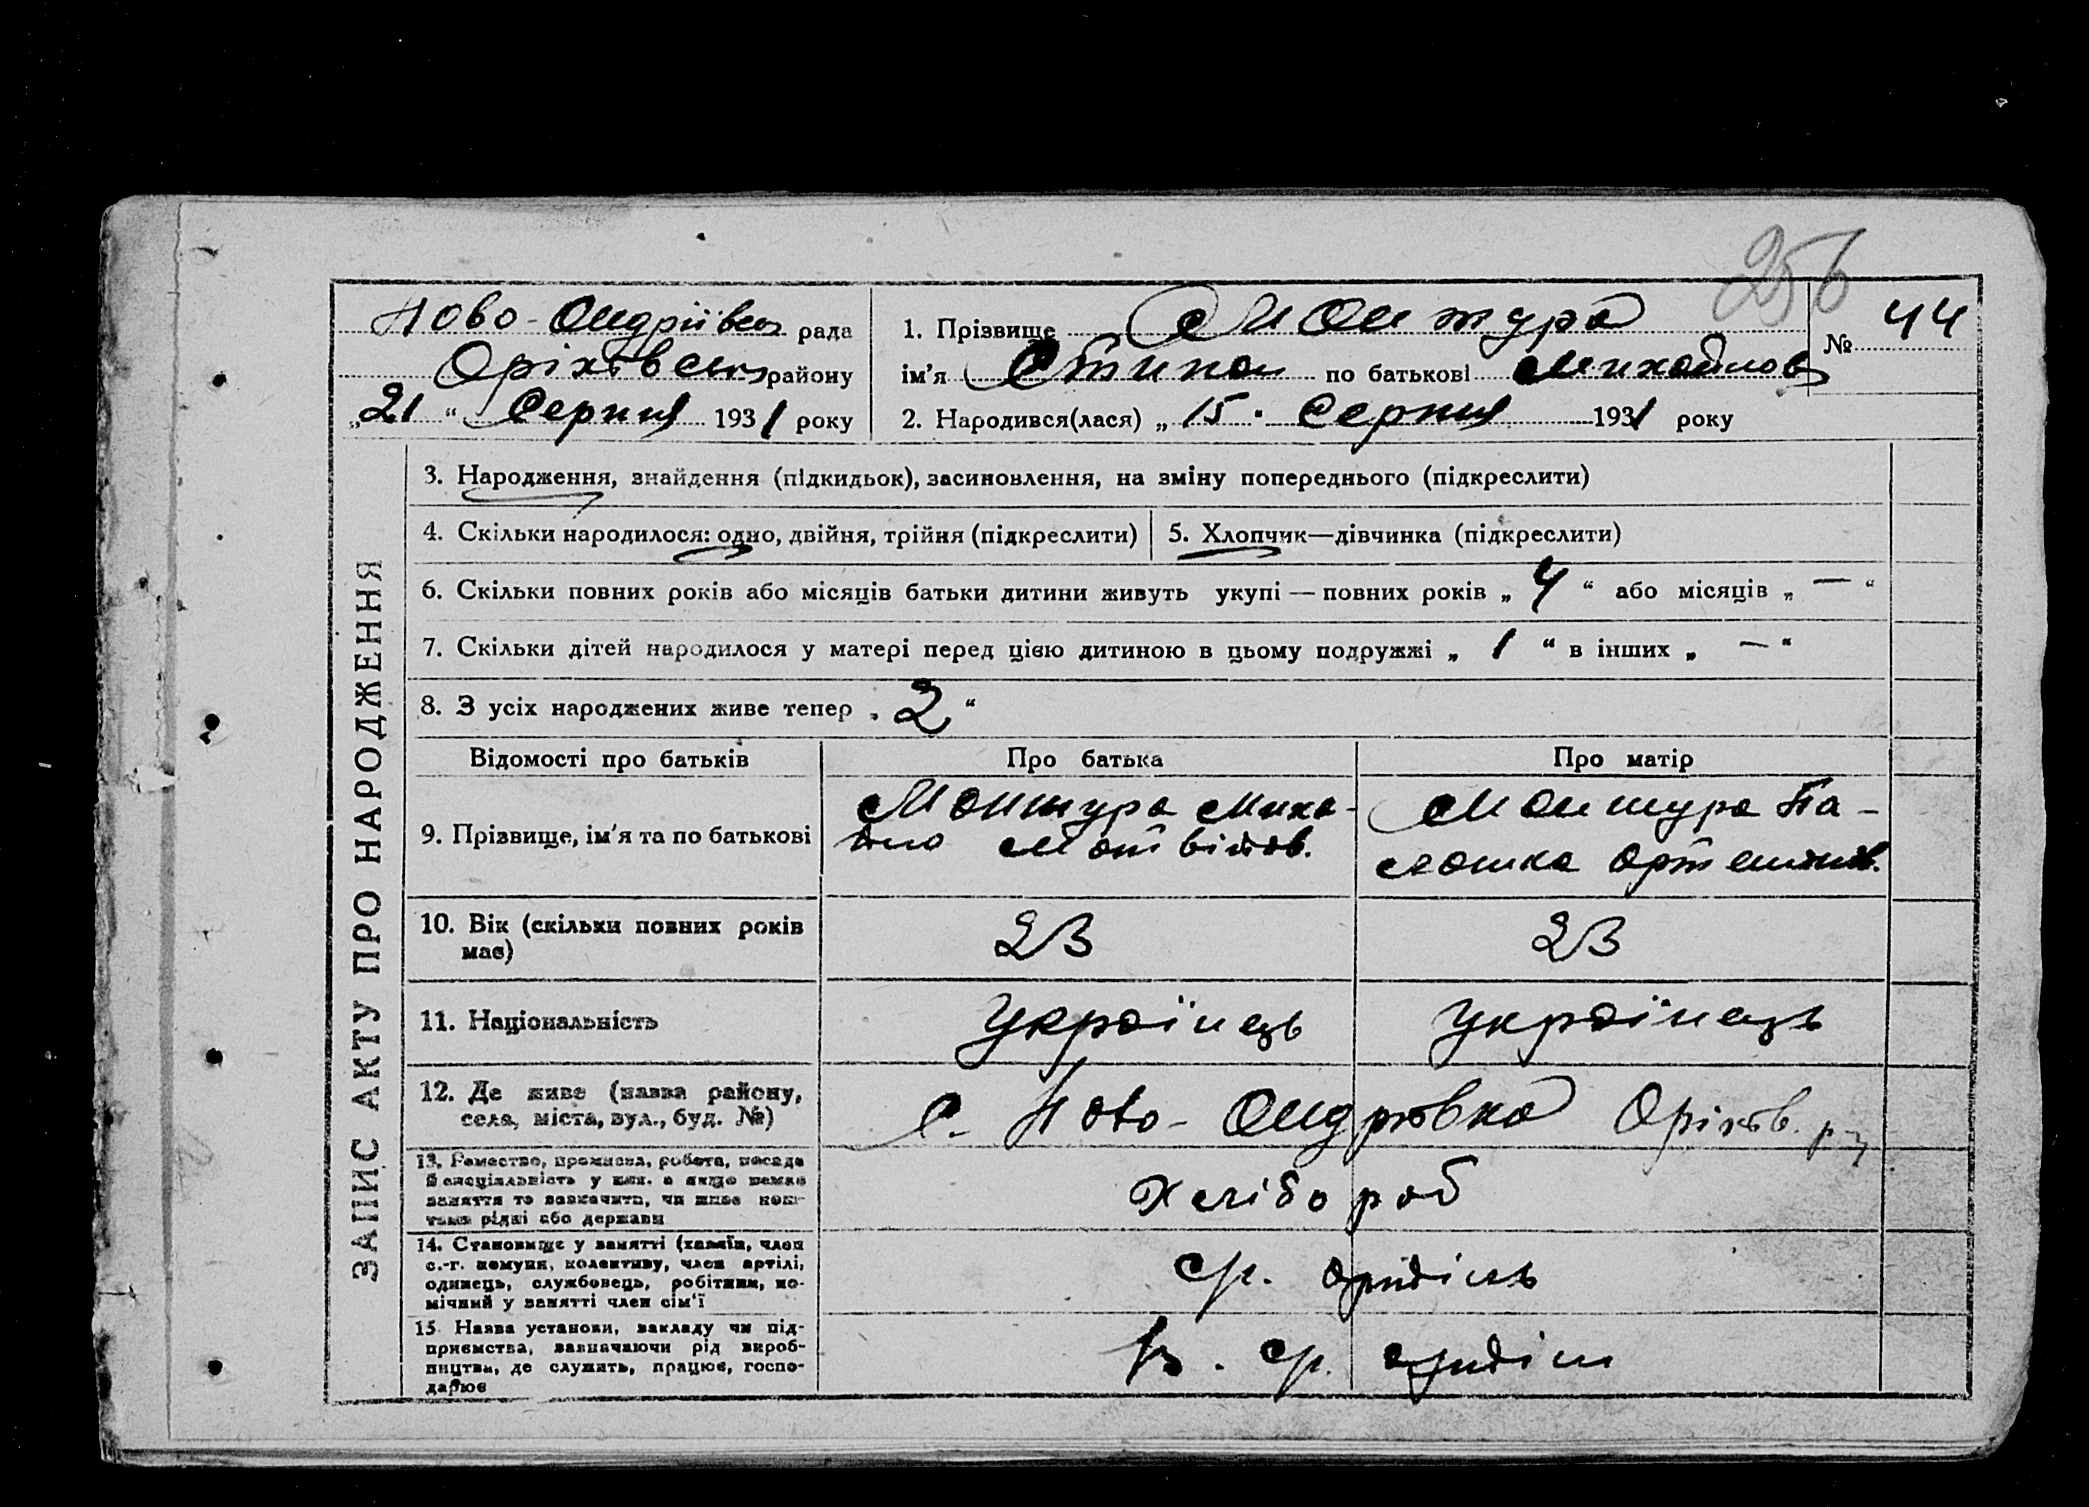 256
Ново-Андріївськ рада
Оріхівськ району
„21“ Серпня 1931 року
1. Прізвище Мантура
ім’я Степан по батькові Михайлов
№ 44
2. Народився(лася) „15“ Серпня 1931 року
ЗАПИС АКТУ ПРО НАРОДЖЕННЯ
3. Народження, знайдення (підкидьок), засиновлення, на зміну попереднього (підкреслити)
4. Скільки народилося: одно, двійня, трійня (підкреслити) 5. Хлопчик—дівчинка (підкреслити)
6. Скільки повних років або місяців батьки дитини живуть укупі — повних років „4“ або місяців „—“
7. Скільки дітей народилося у матері перед цією дитиною в цьому подружжі „1“ в інших „—“
8. З усіх народжених живе тепер „2“
Відомості про батьків Про батька Про матір
9. Прізвище, ім’я та по батькові
Мантура Миха-
йло Матвійов.
Мантура Па-
лашка
10. Вік (скільки повних років
має)
23 23
11. Національність Українець Українець
12. Де живе (назва району,
села, міста, вул., буд. №)
с. Ново-Андрівка Оріхів. р-н
13. Ремество, промисел, робота, посада
й спеціяльність у цім. а якщо немає
заняття то зазначити, чи живе кош-
тами рідні або держави
Хлібороб
14. Становище у занятті (хазяїн, член
с.-г. комуни, колективу, член артілі,
одинець, службовець, робітник, по-
мічний у занятті член сім’ї
ср.
15. Назва установи, закладу чи під-
приємства, зазначаючи рід вироб-
ництва, де служить, працює, госпо-
дарює
ср.